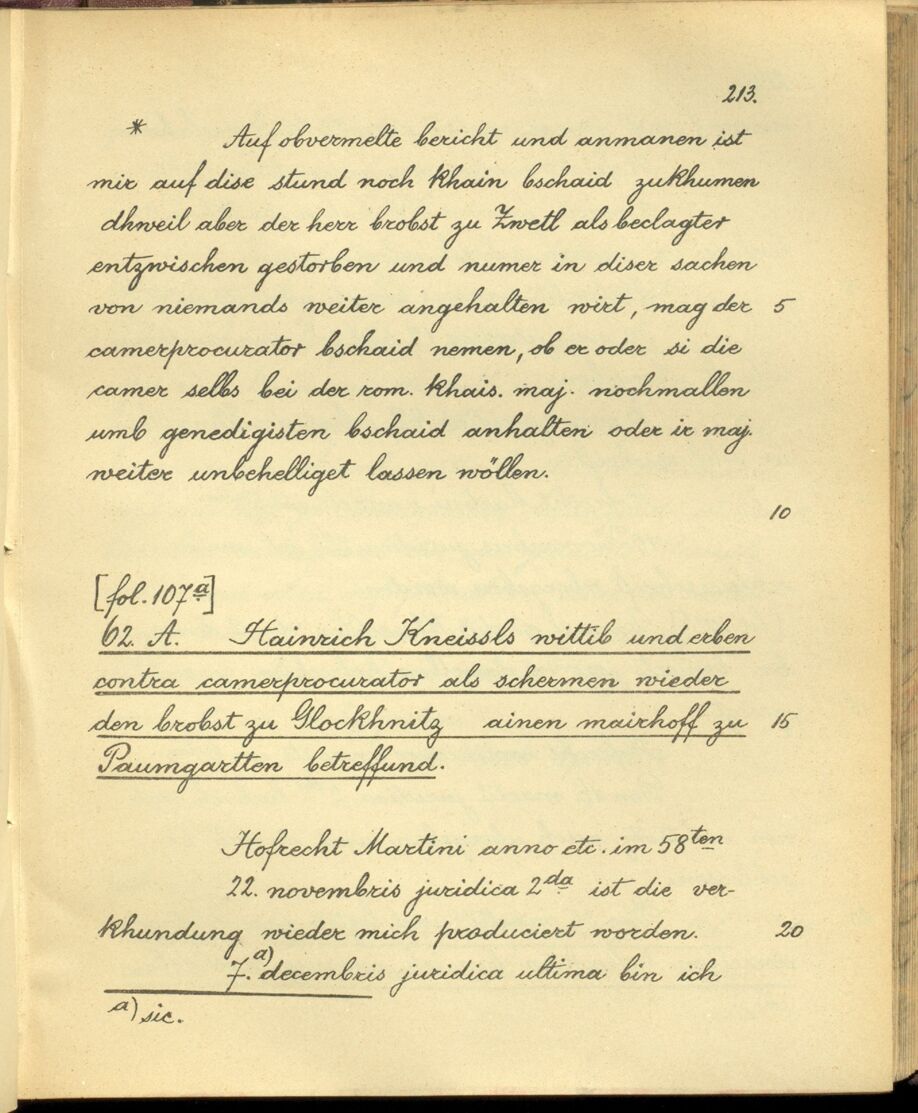 213.
* Auf obvermelte bericht und anmanen ist
mir auf dise stund noch khain bschaid zukhumen
dhweil aber der herr brobst zu Zwetl als beclagter
entzwischen gestorben und numer in diser sachen
von niemands weiter angehalten wirt, mag der 5
camerprocurator bschaid nemen, ob er oder si die
camer selbs bei der rom. khais. maj. nochmallen
umb genedigisten bschaid anhalten oder ir maj.
weiter unbehelliget lassen wöllen.
10
[fol. 107a]
62. A. Hainrich Kneissls wittib und erben
contra camerprocurator als schermen wieder
den brobst zu Glockhnitz ainen mairhoff zu 15
Paumgartten betreffund.
Hofrecht Martini anno etc. im 58ten
22. novembris juridica 2da ist die ver-
khundung wieder mich produciert worden. 20
7. a) decembris juridica ultima bin ich
a) sic.